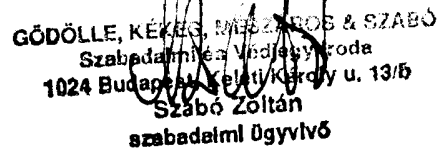 GÖDÖLLE, KÉKES, MÉSZÁROS & SZABÓ
Szabadalmi és Védjegy Iroda
1024 Budapest, Keleti Károly u. 13/b
Szabó Zoltán
szabadalmi ügyvivő